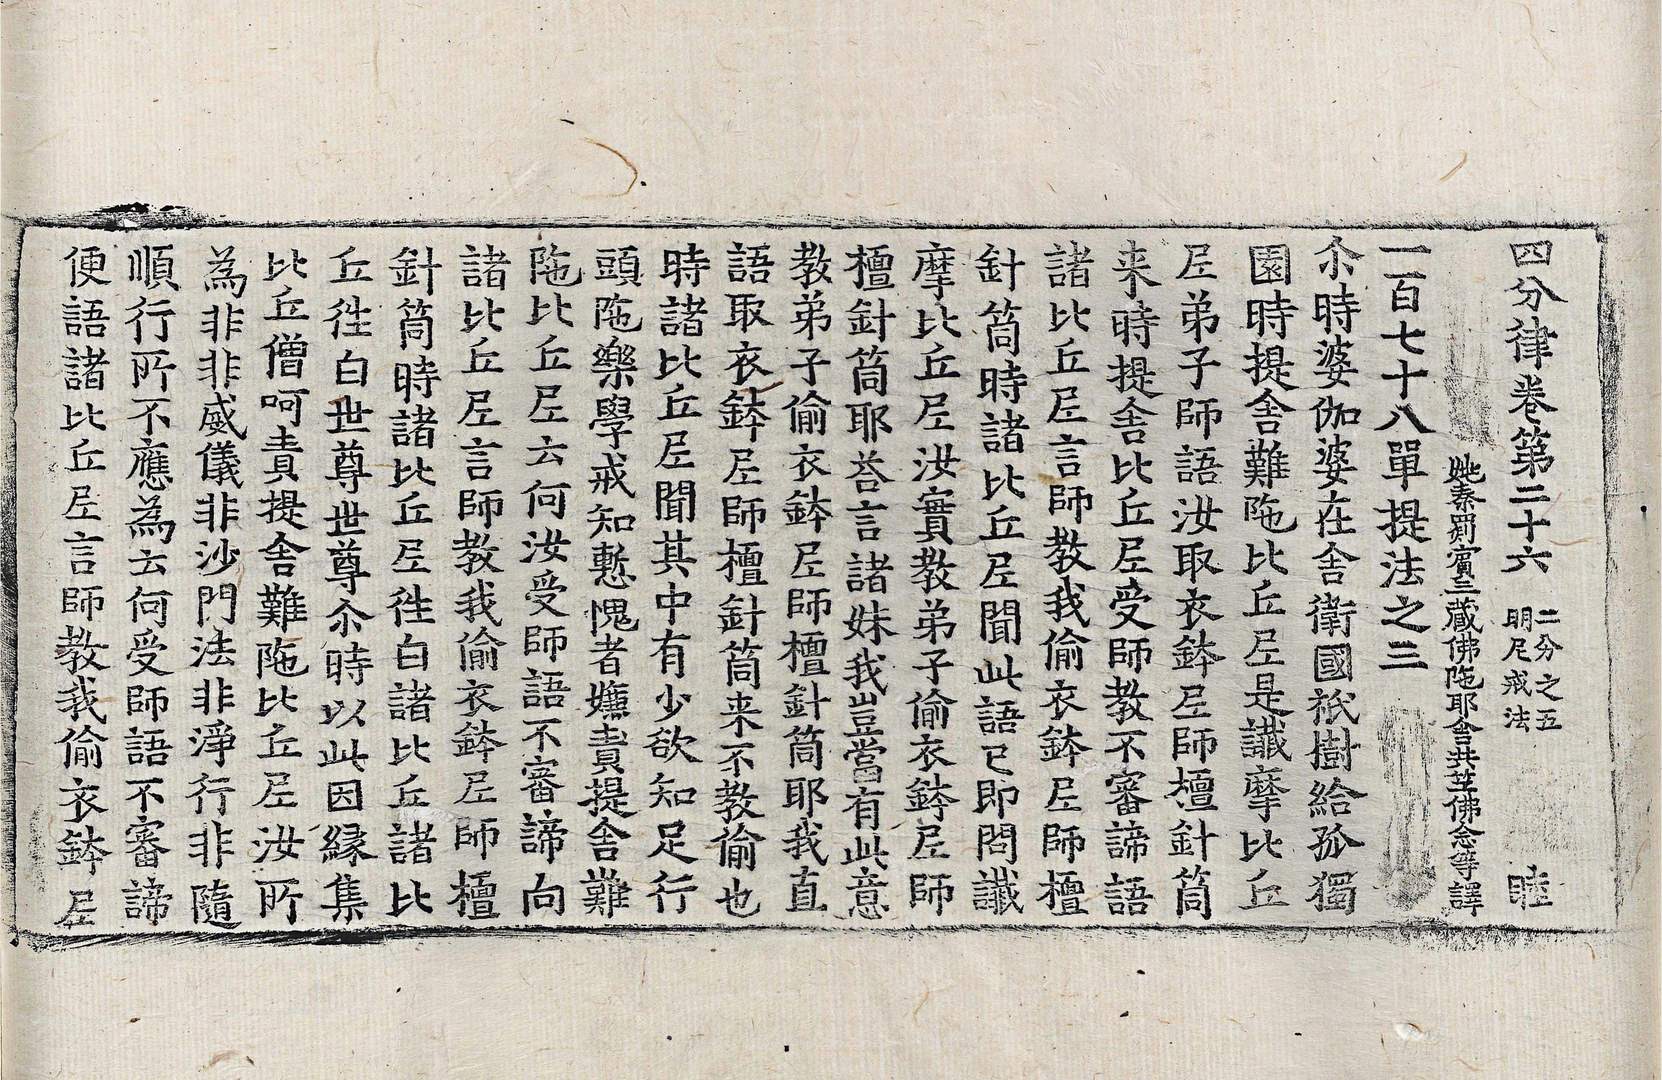 四分律卷第二十六 二分之五 明尼戒法 睦
姚秦罽賓三藏佛陁耶舍共竺佛念等譯
一百七十八單提法之三
尒時婆伽婆在舍衛國祇樹給孤獨
園時提舍難陁比丘尼是讖摩比丘
尼弟子師語汝取衣鉢尼師檀針筒
来時提舍比丘尼受師教不審諦語
諸比丘尼言師教我偷衣鉢尼師檀
針筒時諸比丘尼聞此語已即問讖
摩比丘尼汝實教弟子偷衣鉢尼師
檀針筒耶荅言諸妹我豈當有此意
教弟子偷衣鉢尼師檀針筒耶我直
語取衣鉢尼師檀針筒来不教偷也
時諸比丘尼聞其中有少欲知足行
頭陁樂學戒知慙愧者嫌責提舍難
陁比丘尼云何汝受師語不審諦向
諸比丘尼言師教我偷衣鉢尼師檀
針筒時諸比丘尼徃白諸比丘諸比
丘徃白世尊世尊尒時以此因縁集
比丘僧呵責提舍難陁比丘尼汝所
為非非威儀非沙門法非淨行非隨
順行所不應為云何受師語不審諦
便語諸比丘尼言師教我偷衣鉢尼